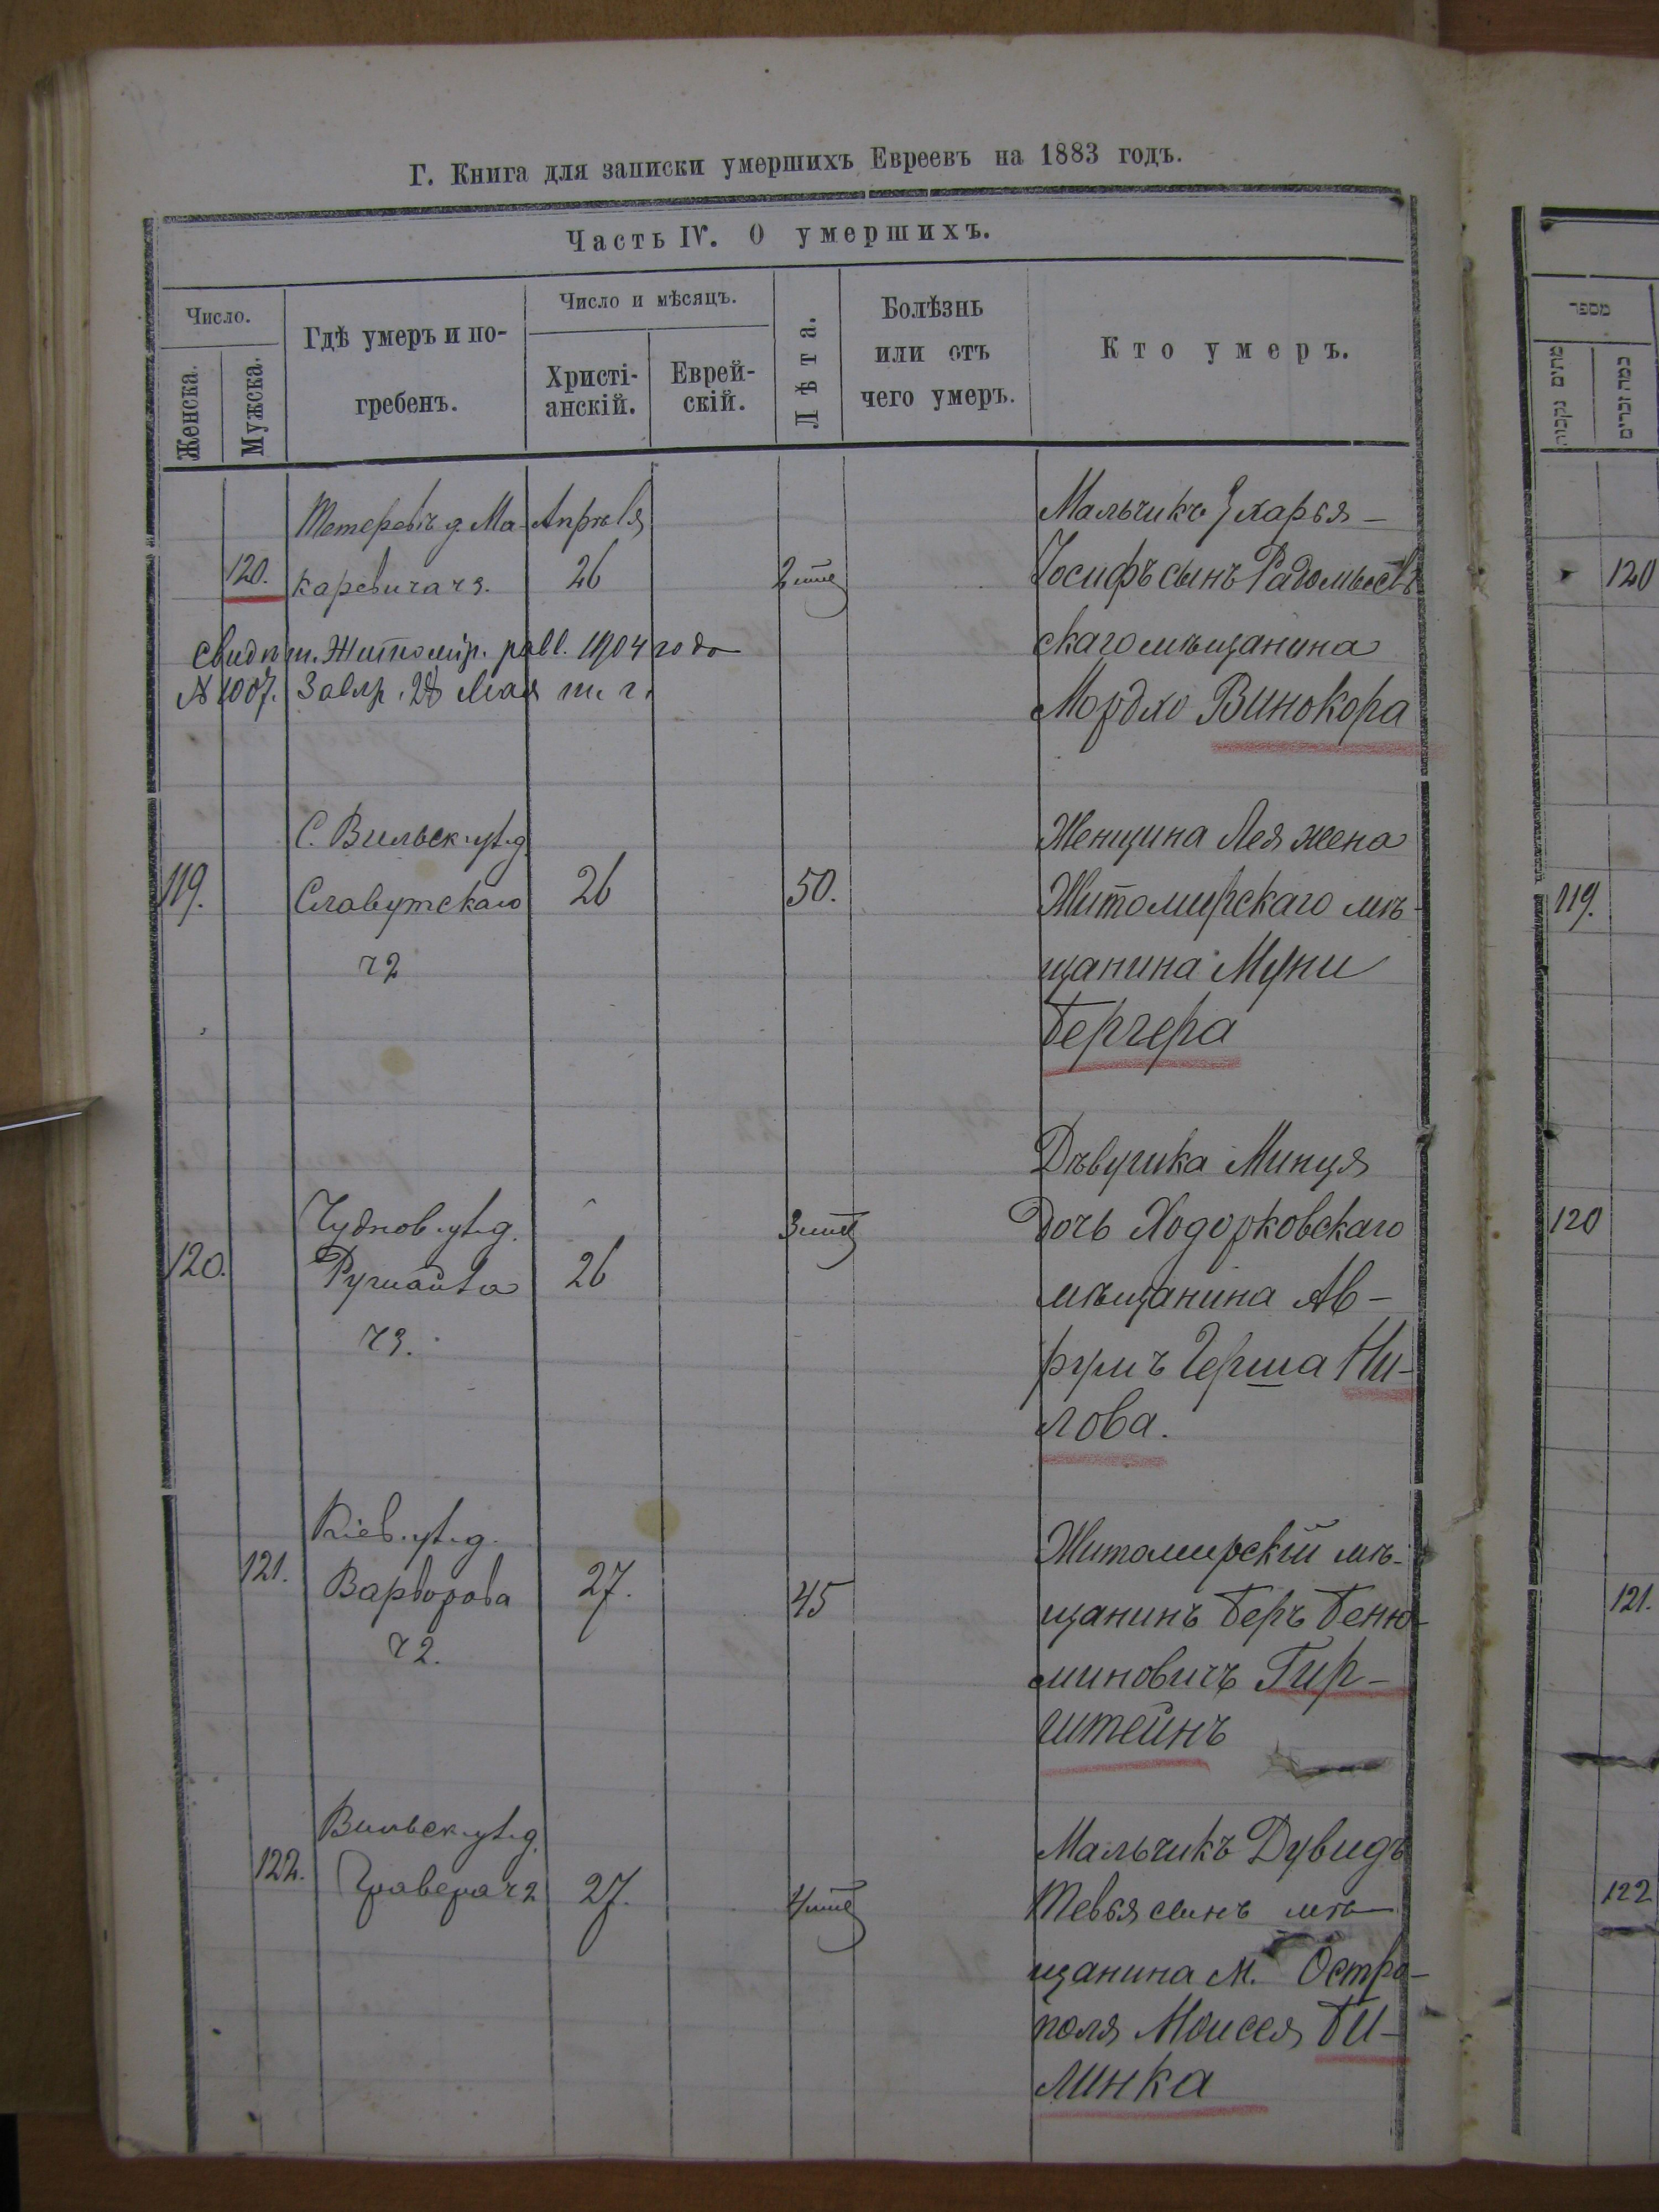 Г. Книга для записки умершихъ Евреевъ на 1883 годъ.
Часть IV. О умершихъ.
Число.
Женска.
Мужска.
Гдѣ умеръ и по-
гребенъ.
Число и мѣсяцъ.
Христі-
анскій.
Еврей-
скій.
Лѣта.
Болѣзнь
или отъ
чего умеръ.
Кто умеръ.
Тетеревіъ д. Ма-
120. каревича ч3.
Апрѣля
26
2
Мальчикъ Зхарья-
Іосифъ сынъ
скаго мѣщанина
Мордко Винокора
Свидѣт. Житомір. равв. 1904 года
№ 1007. 28 Мая т. г.
119.
С. Вильск. ул. д.
Славутскаго
ч2
26
50.
Женщина Лея жена
Житомирскаго мѣ-
щанина Муни
Бергера
120.
Чуднов. ул. д.
ч3.
26
3
Дѣвушка Минця
дочь Ходорковскаго
мѣщанина Ав-
румъ Герша Ни-
лова.
121.
Кіев. ул. д.
Варворова
ч2.
27.
45
Житомирскій мѣ-
щанинъ Беръ Беню-
миновичъ Гир-
штейнъ
122.
Вильск. ул. д.
Гравера ч2
27.
4
Мальчикъ Дувидъ
Тевья сынъ мѣ-
щанина м. Остро-
поля Моисея Би-
линка
מספר
120
119.
120
121.
122